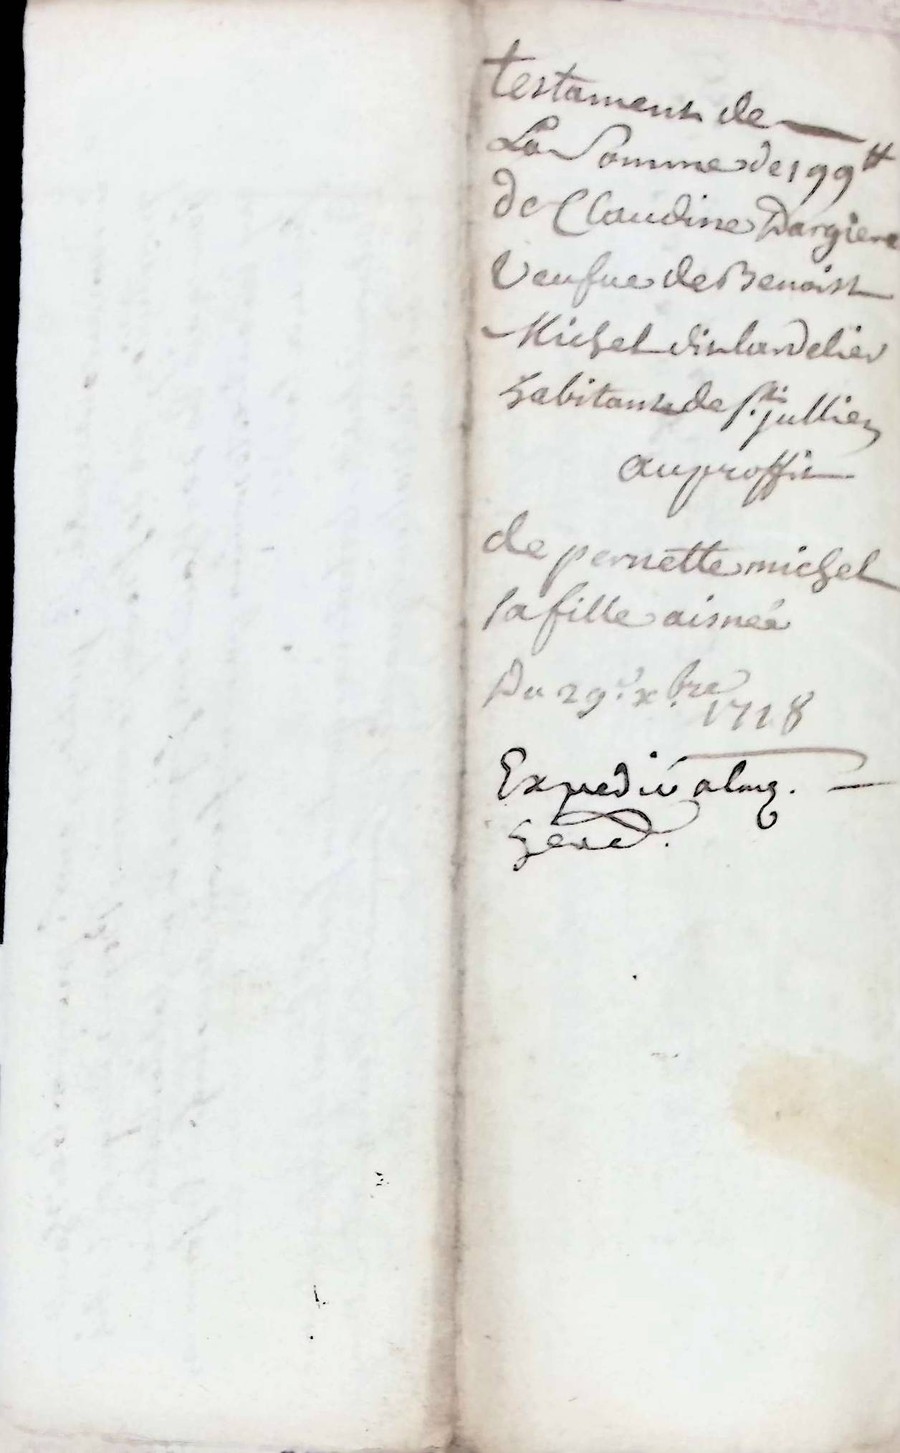 testament de
La Somme de 199 ₶
de Claudine Dargiere
Veufue de Benoist
Michel dit lardelier
habitante de St. jullien
au proffit
de pernette michel
sa fille aisnéé
Du 29e. xbre
1718
Expedié a lad.
hered.